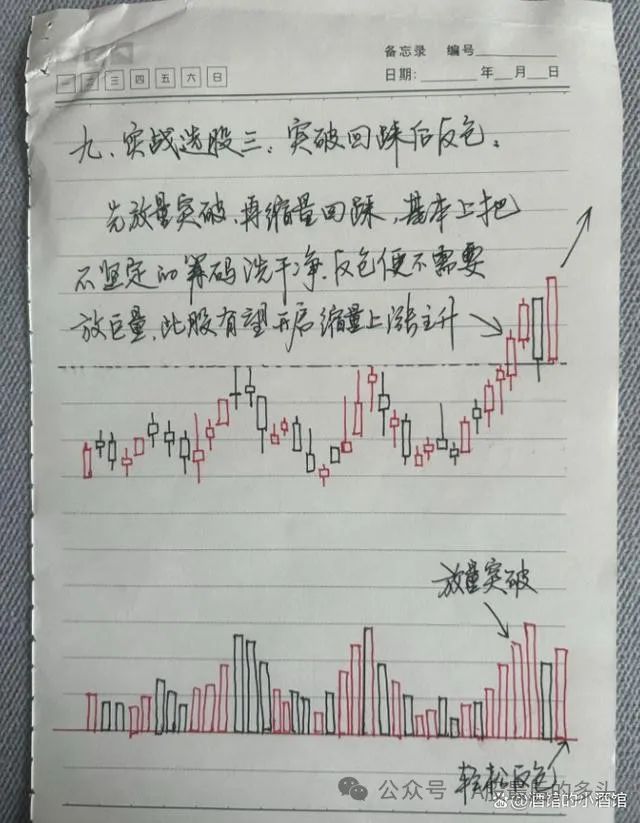 备忘录 编号
一 二 三 四 五 六 日
日期: 年 月 日
九、实战选股三：突破回踩后反包。
先放量突破，再缩量回踩，基本上把
不坚定的筹码洗干净，反包便不需要
放巨量，此股有望开启缩量上涨主升
放量突破
轻松反包
公众号
的多头
@酒馆的小酒馆